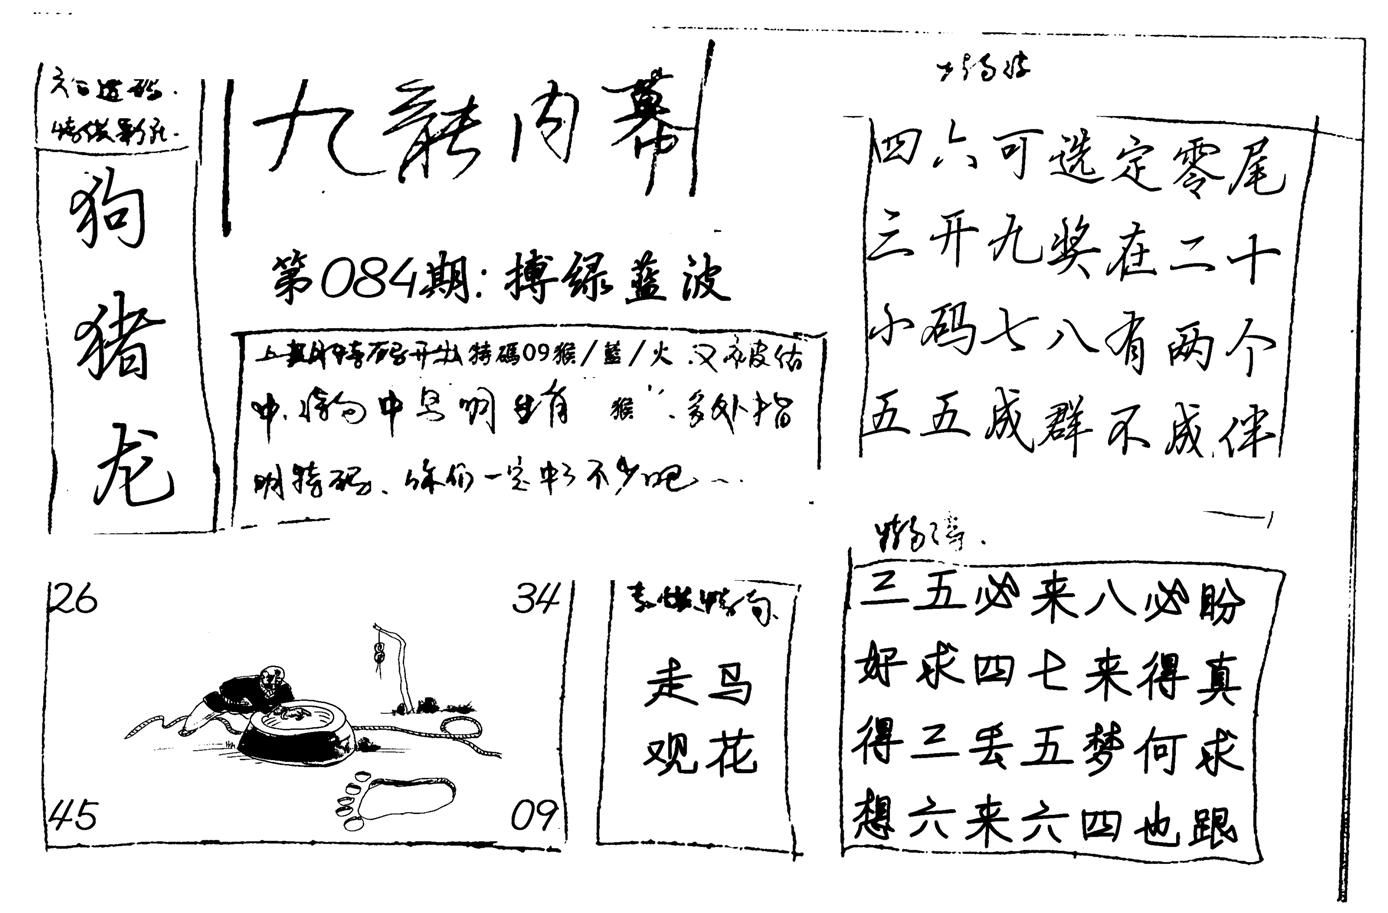 九龍内幕
狗
猪
龙
第084期:搏绿蓝波
上期特码开出特碼09猴/藍/火.又被估
中.特句中 明 有"猴".多处指
明特码.你们一定中了不少吧~
四六可选定零尾
三开九奖在二十
小码七八有两个
五五成群不成伴
26
34
45
09
走马
观花
三五必来八必盼
好求四七来得真
得三丢五梦何求
想六来六四也跟